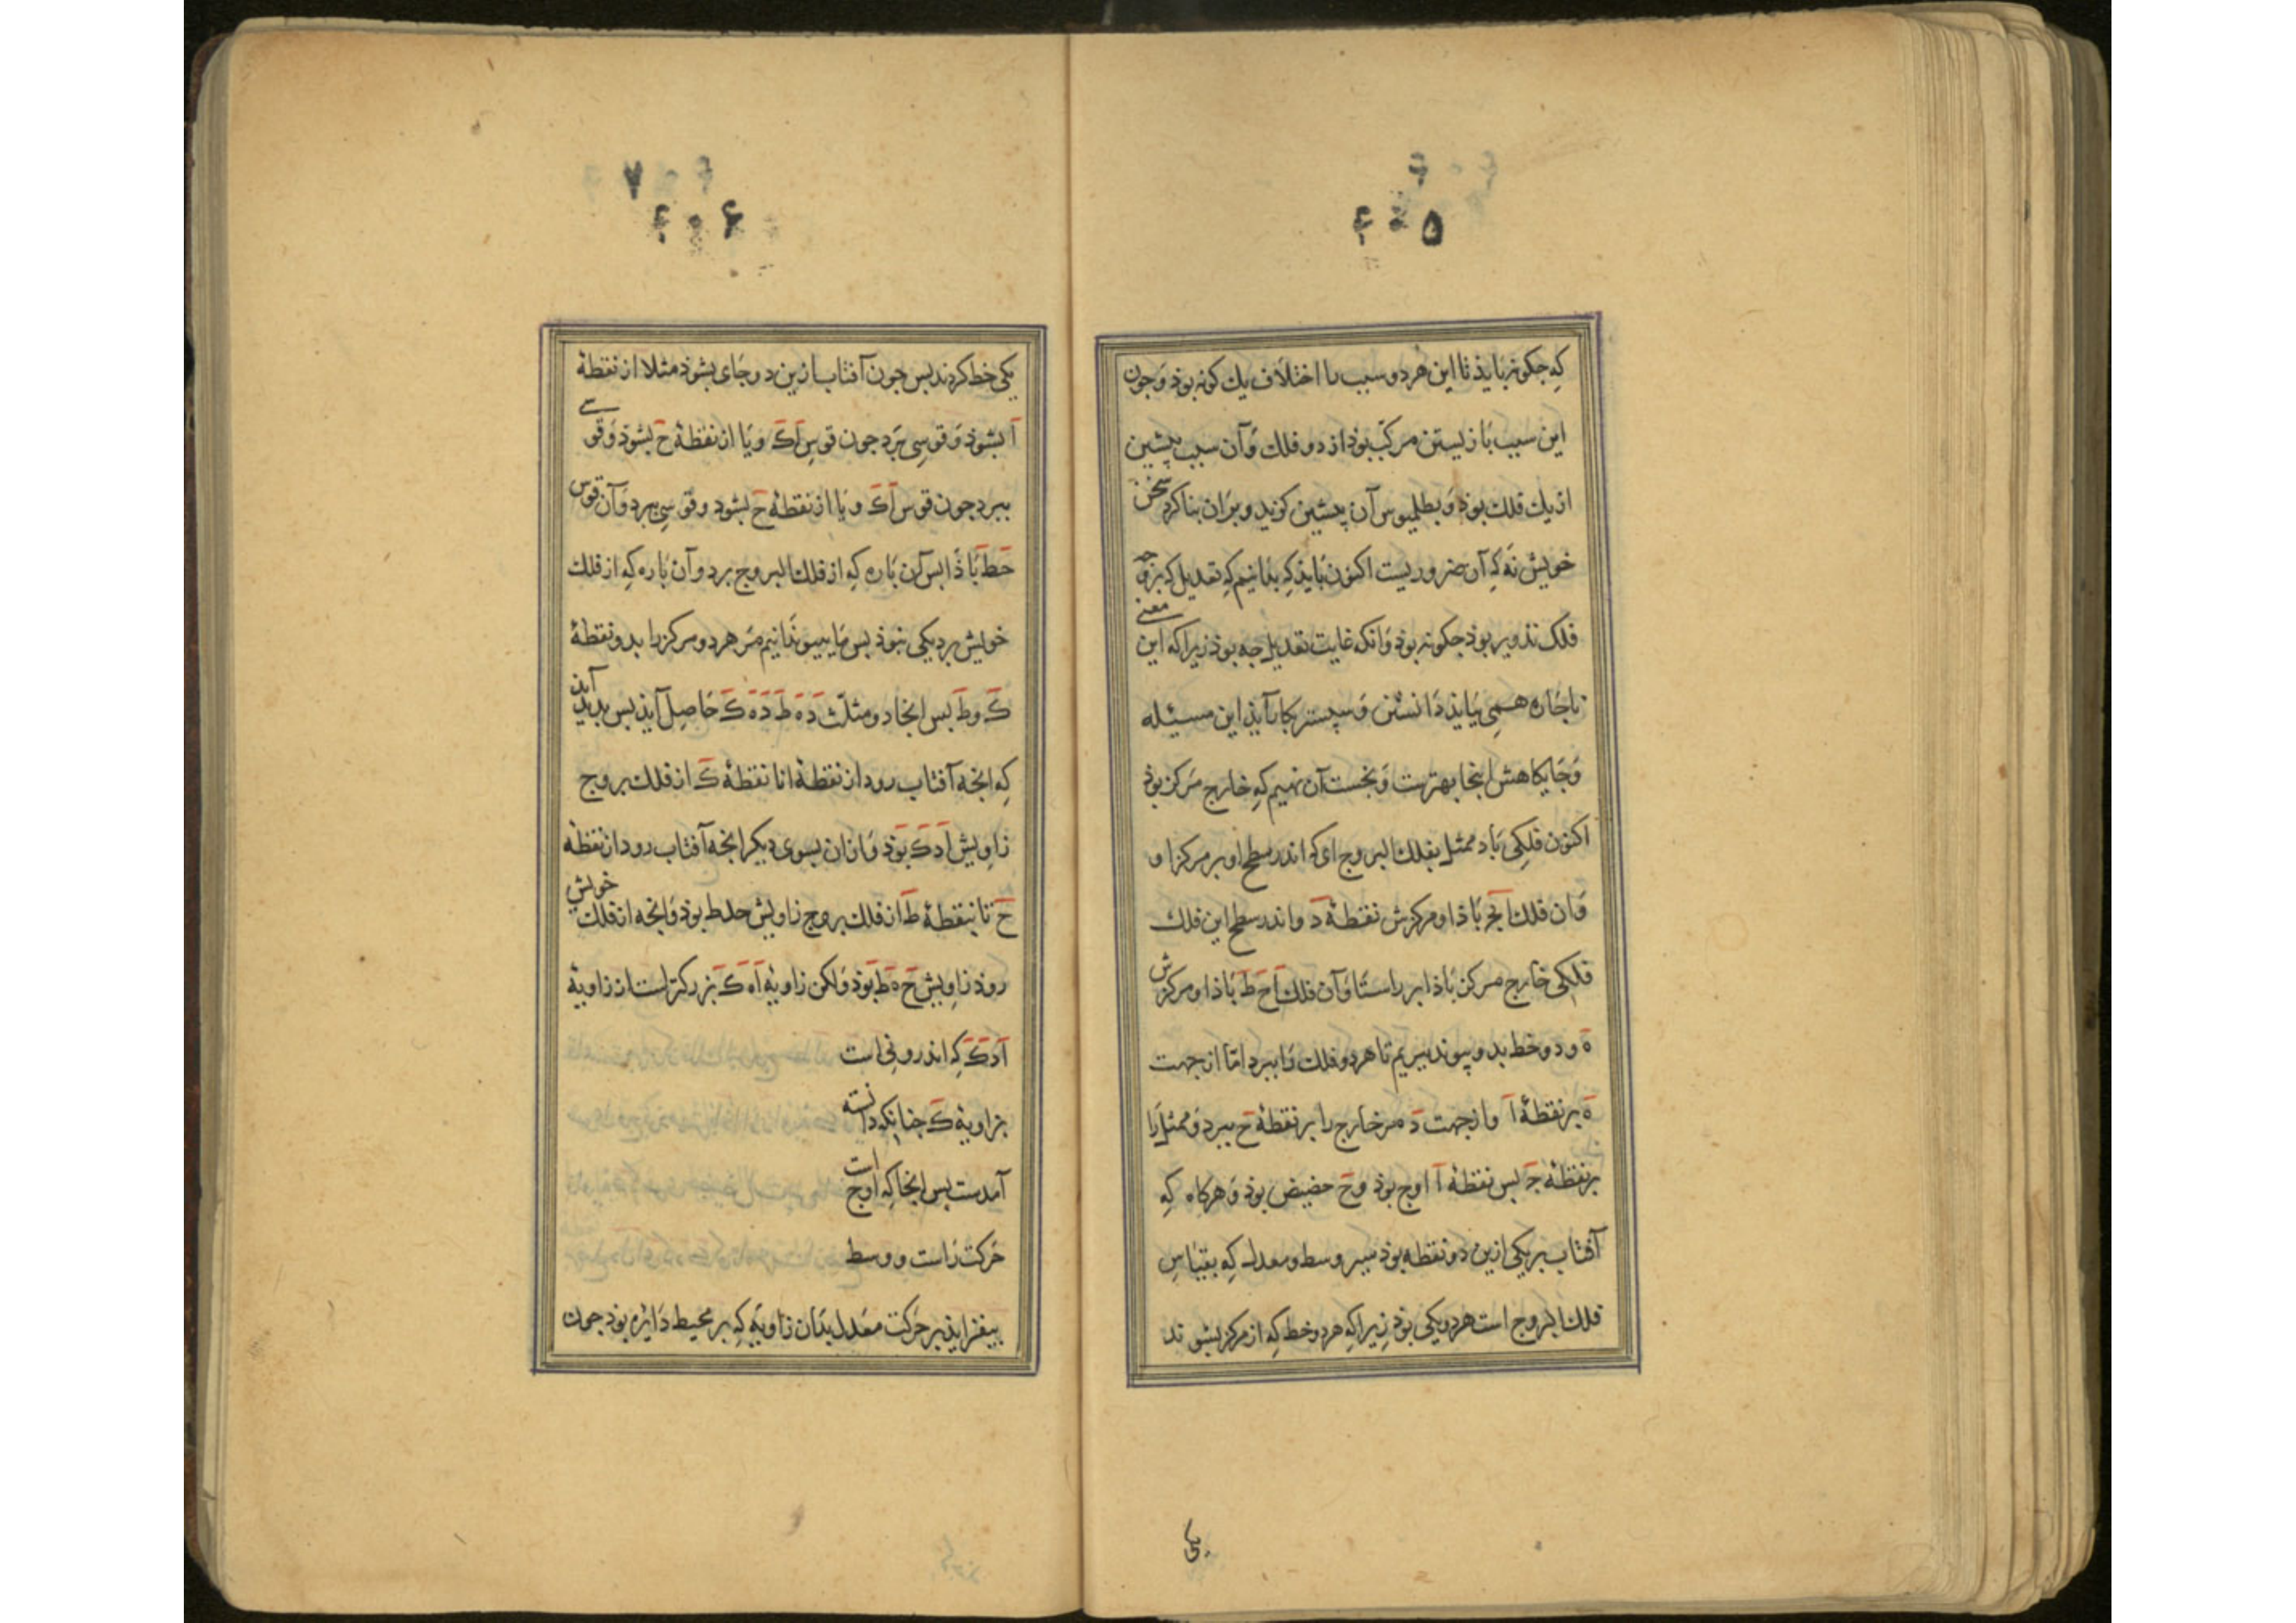 ۴۰۵
که جکونه بایذ تا این هر دو سبب با اختلاف یك کونه بوذ وجون
این سبب بازیستن مرکب بوذ از دو فلك وآن سبب پیشین
از یك فلك بوذ وبطلمیوس آن پیشین کزید وبران بنا کرد سخن
خویش نه که آن ضروریست اکنون بایذ که بدانیم که تعدیل که بر وجه
فلک تذویر بوذ جکونه بوذ وانکه غایت تعدیل جه بوذ زیرا که این معنی
ناجاره همی بیایذ دانستن وسپستر بکار آیذ این مسیله
وجایکاهش اینجا بهترست ونخست آن نهیم که خارج مرکز بوذ
اکنون فلکی باد ممثل بفلك البروج ای که اندر سطح او بر مرکز او
وان فلك ابج باذا ومرکزش نقطهٔ د واندر سطح این فلك
فلکی خارج مرکز باذا بر راستا وآن فلك اح ط باذا ومرکزش
ه ودو خط بدو پیوند ببریم تا هر دو فلك را ببرد اما از جهت
ه بر نقطهٔ ا واز جهت د مر خارج را بر نقطهٔ ح ببرد وممثل را
بر نقطهٔ ج بس نقطهٔ ا اوج بوذ وح حضیض بوذ وهرکاه که
آفتاب بر یکی ازین دو نقطه بوذ سیر وسط ومعدل که بقیاس
فلك البروج است هر دو یکی بوذ زیرا که هر دو خط که از مرکز بشوند
یکی
۴۰۶
یکی خط کردند بس جون آفتاب ازین دو جای بشوذ مثلا از نقطهٔ
ا بشوذ وقوسی برد جون قوس اك ویا از نقطهٔ ح بشوذ وقوسی
ببرد جون قوس اك ویا از نقطهٔ ح بشود وقوسی ببرد وآن قوس
حط باذا بس آن باره که از فلك البروج برد وآن باره که از فلك
خویش برد یکی نبوذ بس ما بپیوندانیم مر هر دو مرکز را بدو نقطهٔ
ك وط بس اینجا دو مثلث ده ط ده ك حاصل آیذ بس بدید آیذ
که انجه آفتاب رود از نقطهٔ ا تا نقطهٔ ك از فلك بروج
زاویش ادك بوذ وازان بسوی دیکر انجه آفتاب رود از نقطهٔ
ح تا بنقطهٔ ط از فلك بروج زاویش حدط بوذ وانجه از فلك خویش
روذ زاویش ح ه ط بوذ ولکن زاویهٔ اه ك بزرکتر است از زاویهٔ
ادك که اندرونی است
بزاویهٔ ك جنانکه دانسته
آمدست بس اینجا که اوج است
حرکت راست ووسط
بیفزایذ بر حرکت معدل بذان زاویه که بر محیط دایره بوذ جون